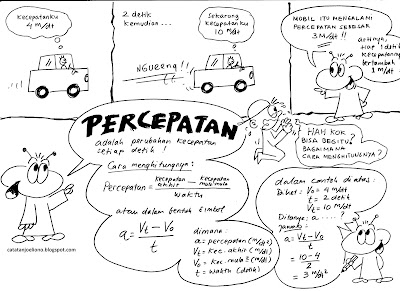 kecepatanku
4 m/dt
2 detik
kemudian...
NGUEENG!!
Sekarang
kecepatanku
10 m/dt
MOBIL ITU MENGALAMI
PERCEPATAN SEBESAR
3 M/dt !!
artinya,
tiap 1 detik
kecepatannya
bertambah
3 m/dt
PERCEPATAN
adalah perubahan kecepatan
setiap detik!
Cara menghitungnya:
Percepatan = kecepatan akhir - kecepatan mula²
waktu
atau dalam bentuk simbol
a = Vt - Vo
t
dimana:
a = percepatan (m/dt²)
Vt = Kec. akhir (m/dt)
Vo = Kec. mula² (m/dt)
t = waktu (detik)
HAH KOK
BISA BEGITU?
BAGAIMANA
CARA MENGHITUNGNYA?
dalam contoh di atas:
Diket: Vo = 4 m/dt
t = 2 detik
Vt = 10 m/dt
Ditanya: a.....?
Jawab:
a = Vt - Vo
t
= 10 - 4
2
= 3 m/dt²
catatanjoeliono.blogspot.com